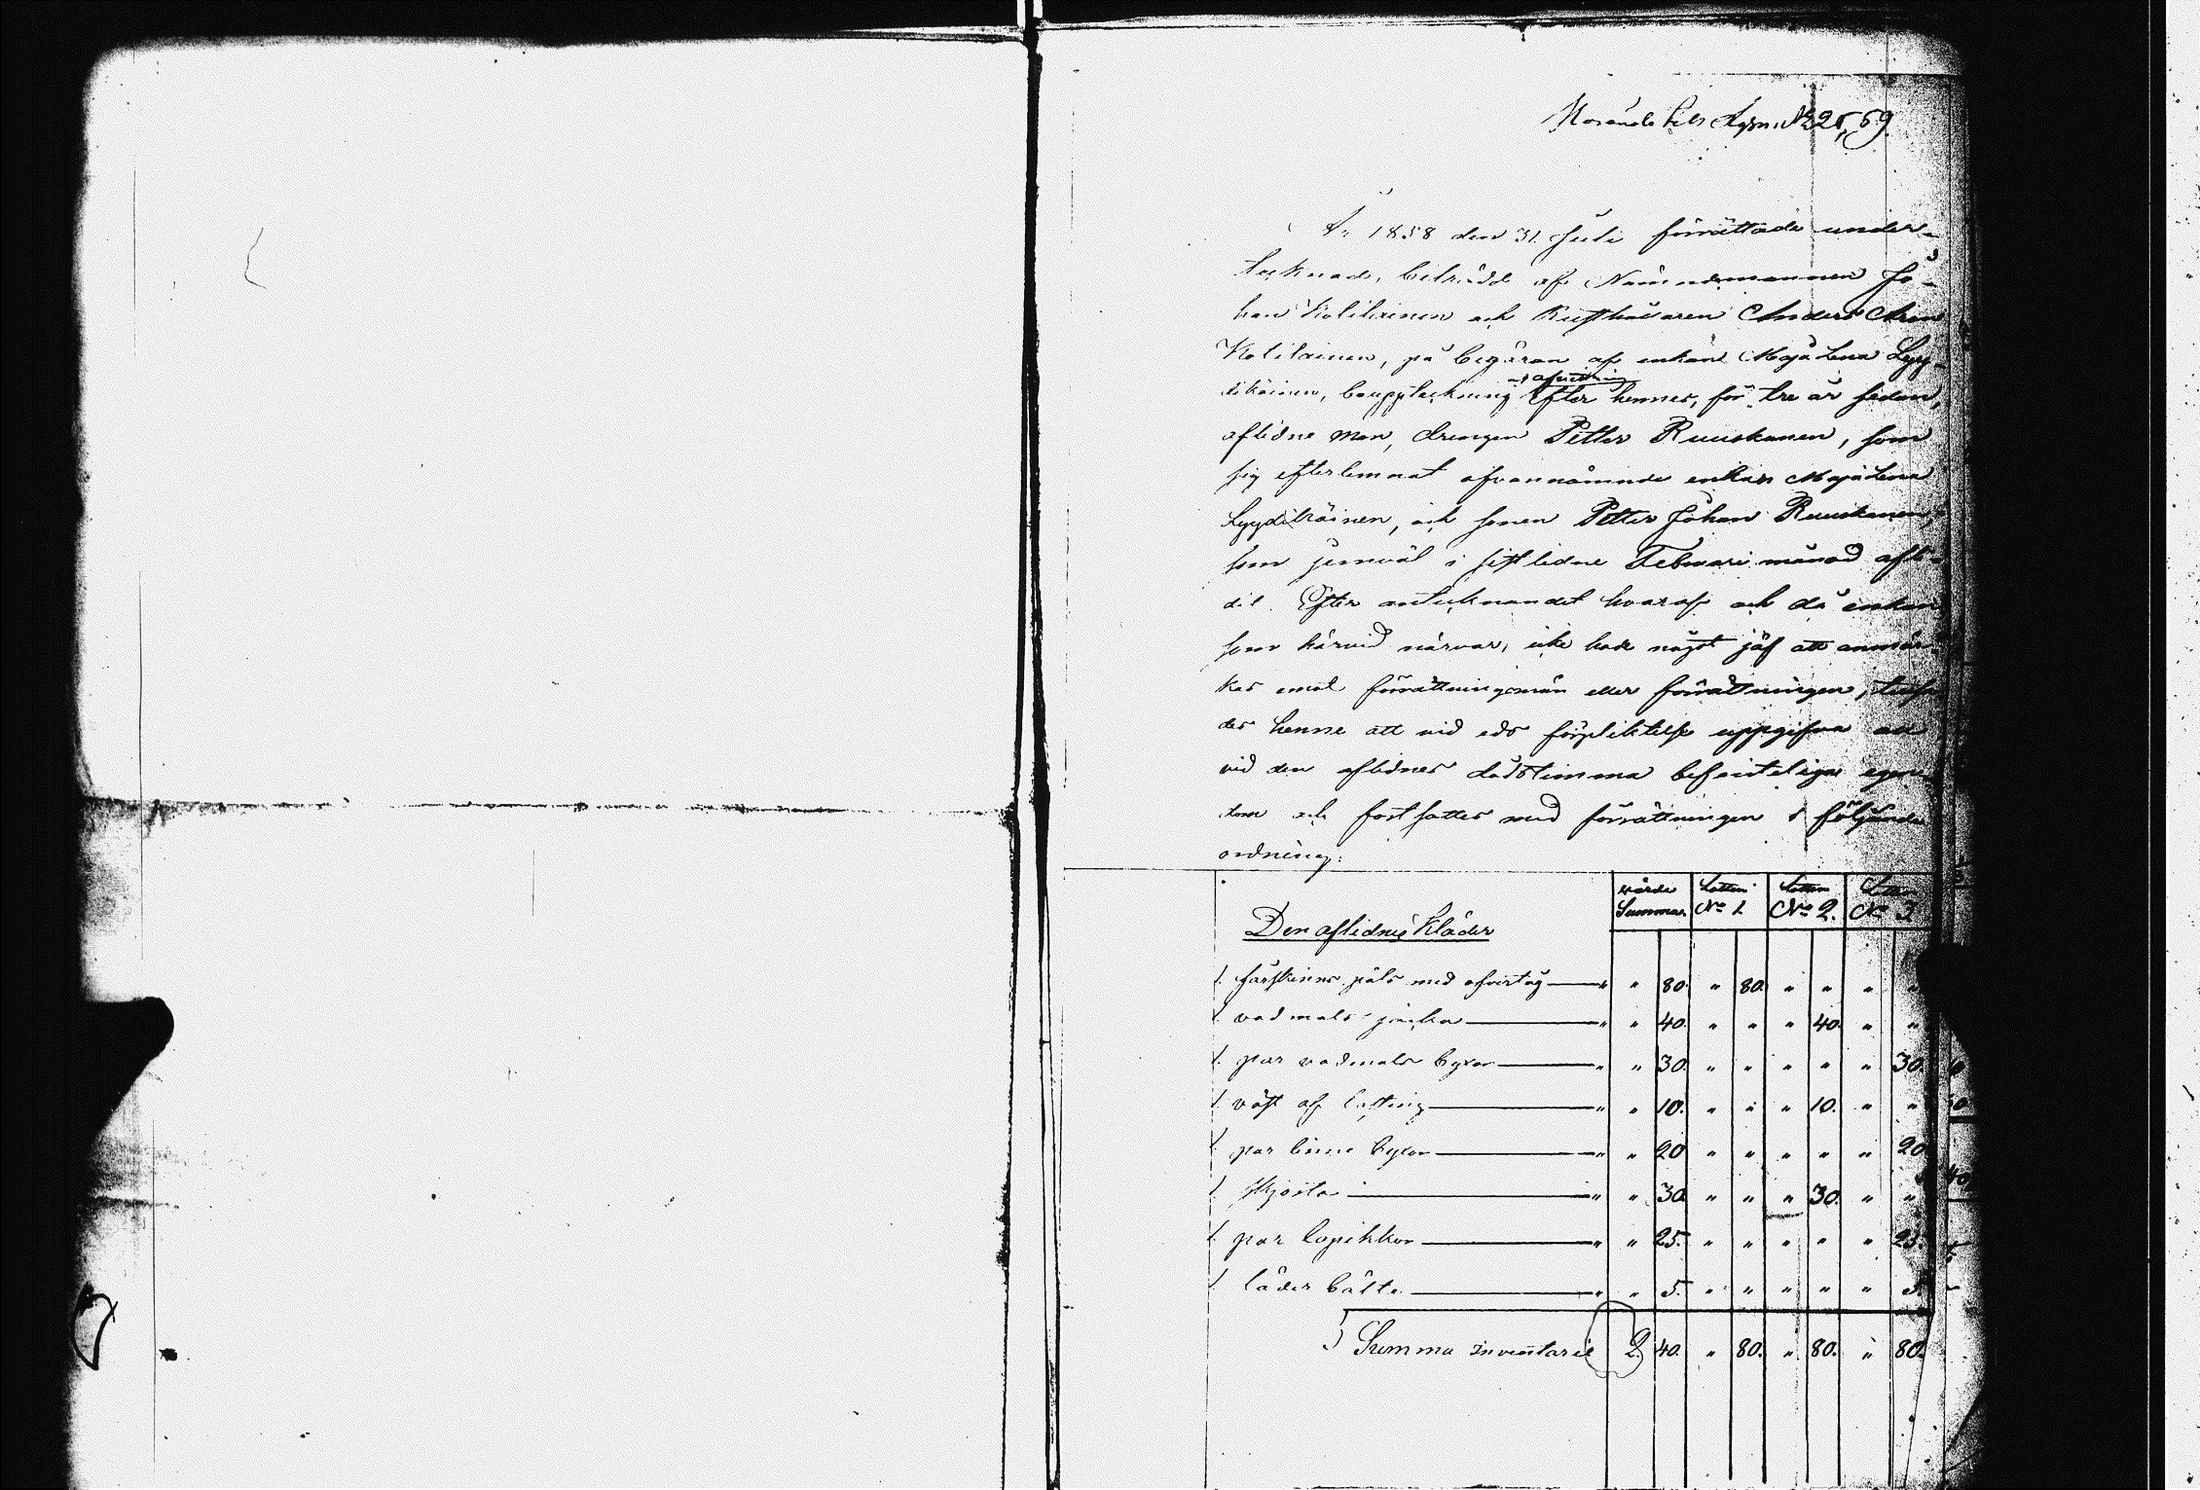 År 1858 den 31. Juli förrättade under-
tecknad, biträdd af Nämndemannen Jo-
han Kolilainen och Rusthållaren Anders Aron
Kolilainen, på begäran af enkan Maja Lena Lyy-
dikäinen, bouppteckning efter hennes, för tre år sedan,
aflidne man, drengen Petter Ruuskanen, som
sig efterlemnat ofvannämnde enkan Maja Lena
Lyydikäinen, och sonen Petter Johan Ruuskanen,
som jemväl i sistlidne Februari månad afli-
dit. Efter antecknandet hvaraf och då enkan
som härvid närvar, icke hade något jäf att anmär-
kas emot förrättningsmän eller förrättningen,
des henne att vid eds förpliktelse uppgifva all
vid den aflidnes dödstimma befinteliga egen-
dom och fortsattes med förrättningen i följande
ordning:
värde Summa. Lotten No 1. Lotten No 2. Lotten No 3.
Den aflidnes Kläder
1. fårskinns päls med öfvertåg " " 80. " 80. " " " "
1. vadmals jacka " " 40. " " " 40. " "
1. par vadmals byxor " " 30. " " " " " 30.
1. väst af lasting " " 10. " " " 10. " "
1. par linne byxor " " 20 " " " " " 20
1. skjorta " " 30. " " " 30. " "
1. par lapikkor " " 25. " " " " " 25.
1. läder bälte " " 5. " " " " " 5.
Summa inventarie 2. 40. " 80. " 80. " 80.